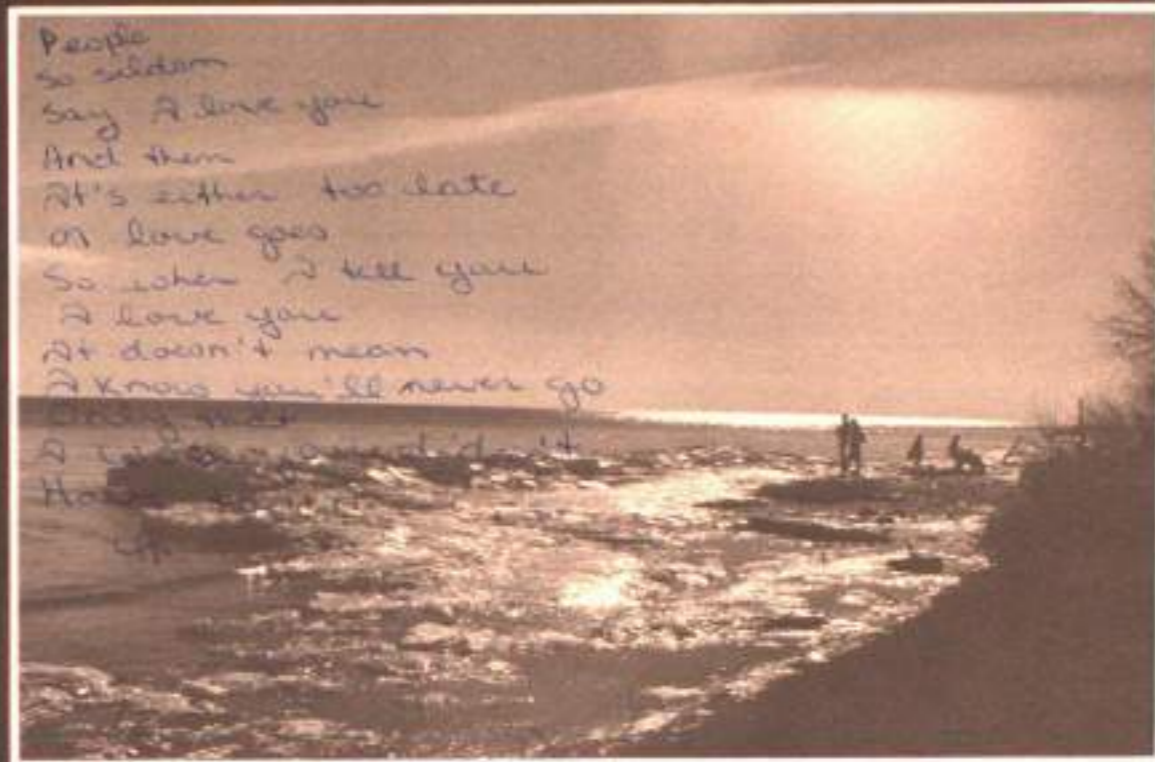 People
So seldom
Say I love you
And then
It's either too late
or love goes
So when I tell you
I love you
It doesn't mean
I know you'll never go
Only that
I wish you didn't
Have